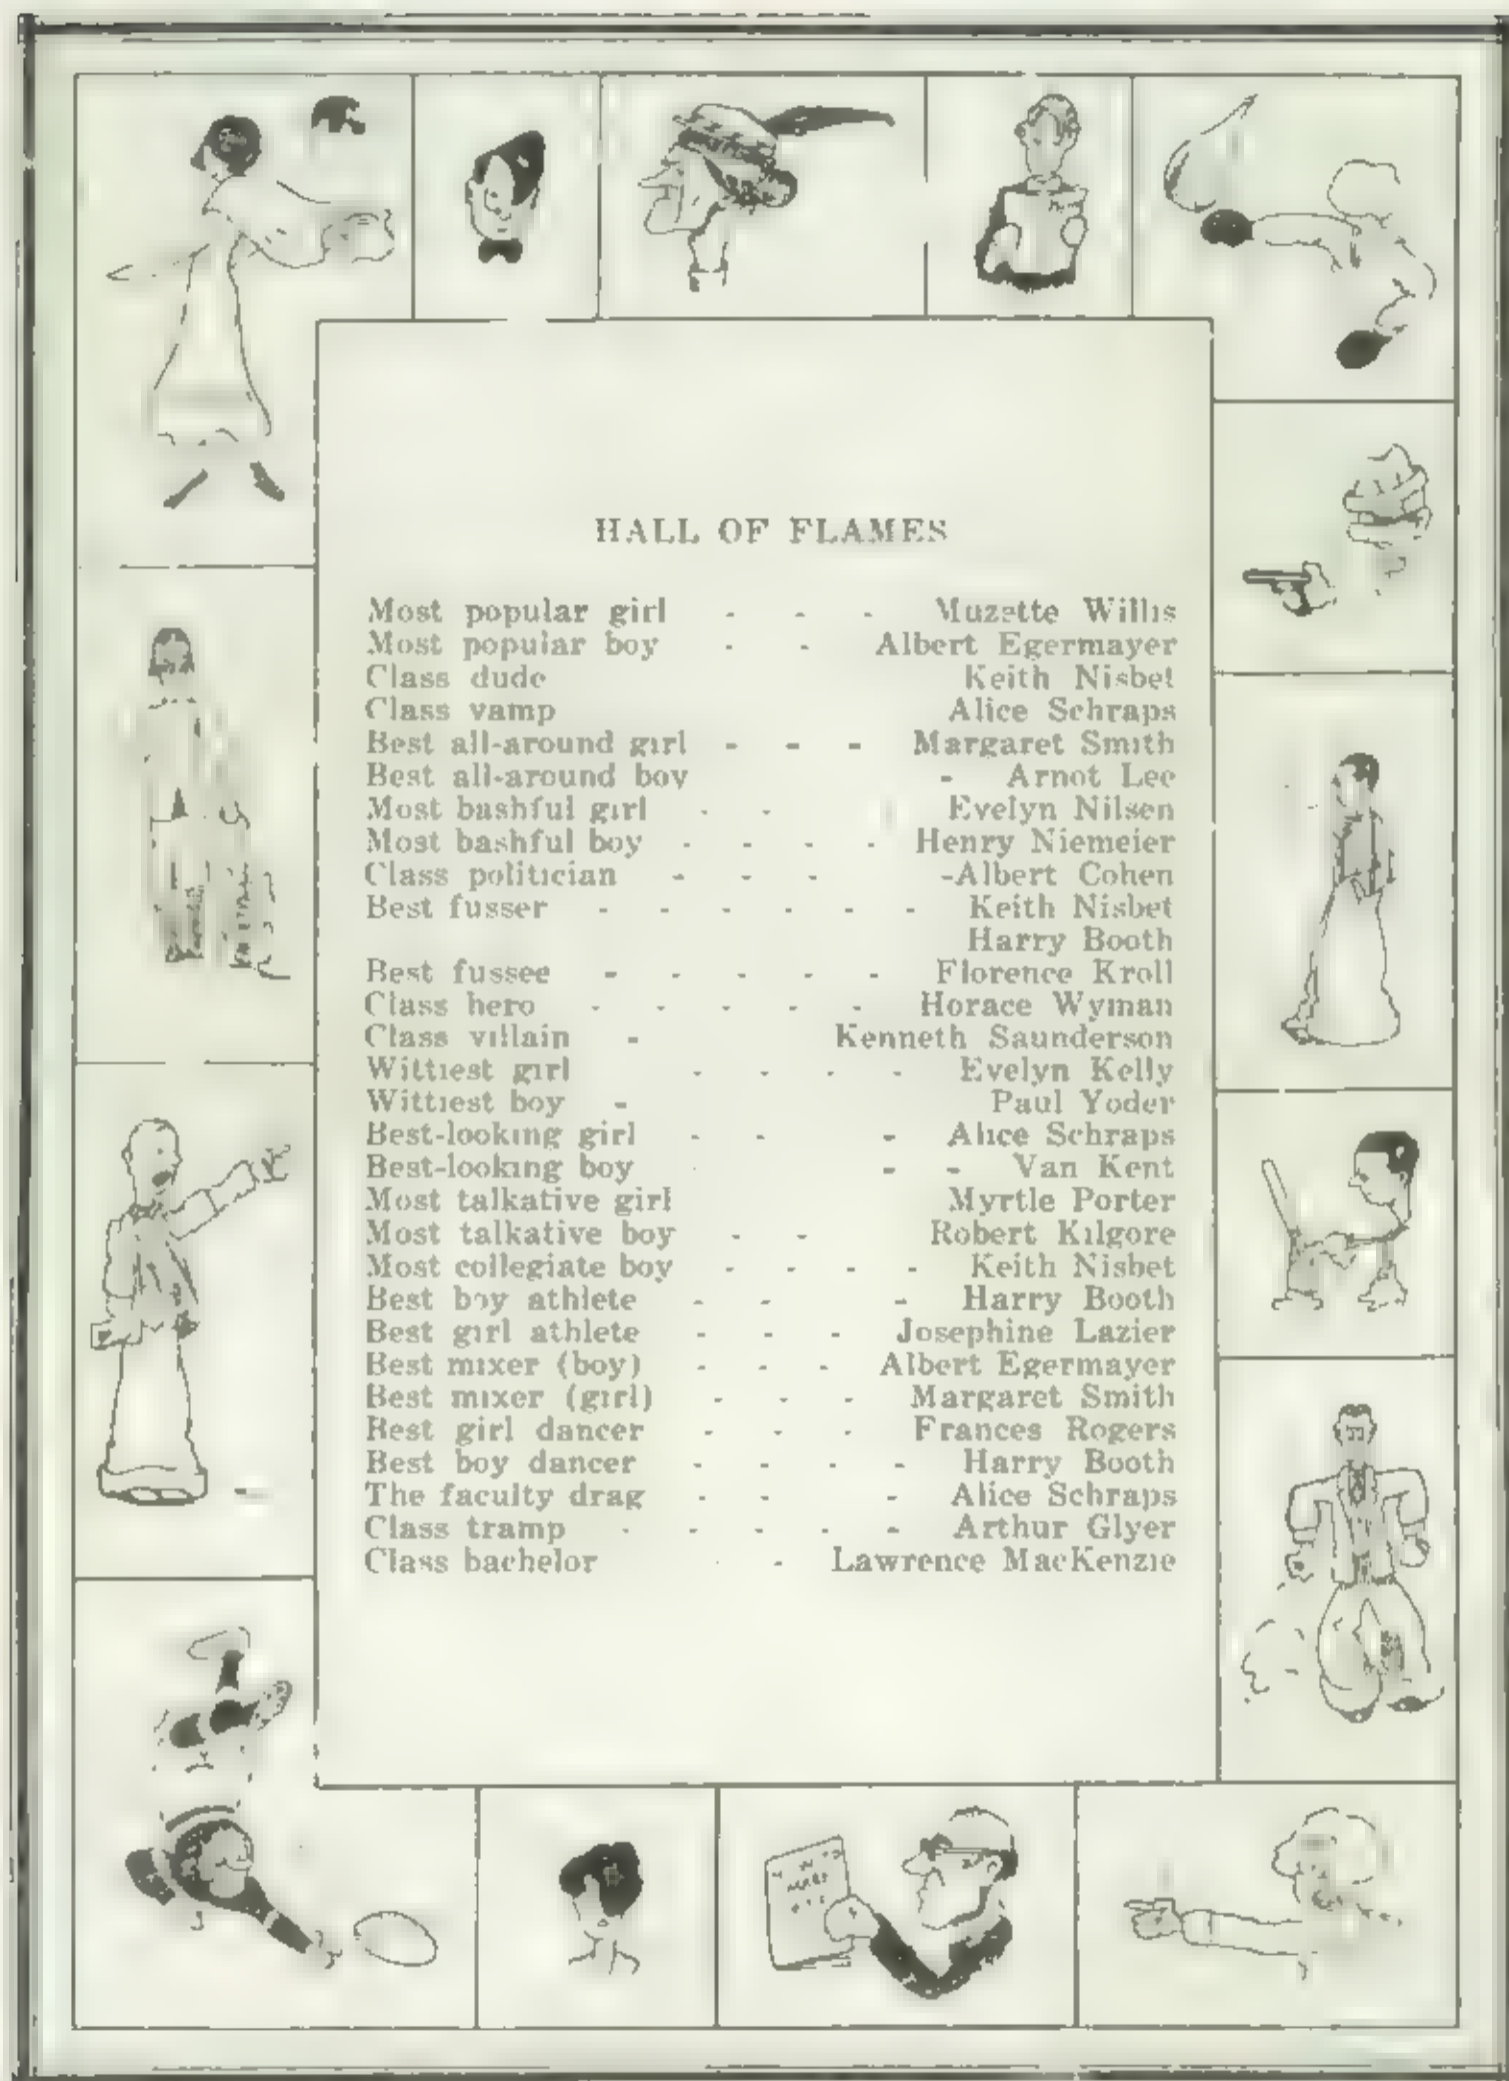 HALL OF FLAMES
Most popular girl - - - Muzette Willis
Most popular boy - - Albert Egermayer
Class dude Keith Nisbet
Class vamp Alice Schraps
Best all-around girl - - - Margaret Smith
Best all-around boy - Arnot Lee
Most bashful girl - - Evelyn Nilsen
Most bashful boy - - - - Henry Niemeier
Class politician - - - -Albert Cohen
Best fusser - - - - - - Keith Nisbet
Harry Booth
Best fussee - - - - - Florence Kroll
Class hero - - - - - Horace Wyman
Class villain - Kenneth Saunderson
Wittiest girl - - - - Evelyn Kelly
Wittiest boy - Paul Yoder
Best-looking girl - - - Alice Schraps
Best-looking boy - - - Van Kent
Most talkative girl Myrtle Porter
Most talkative boy - - Robert Kilgore
Most collegiate boy - - - - Keith Nisbet
Best boy athlete - - - Harry Booth
Best girl athlete - - - Josephine Lazier
Best mixer (boy) - - - Albert Egermayer
Best mixer (girl) - - - Margaret Smith
Best girl dancer - - - Frances Rogers
Best boy dancer - - - - Harry Booth
The faculty drag - - - Alice Schraps
Class tramp - - - - - Arthur Glyer
Class bachelor - - Lawrence MacKenzie